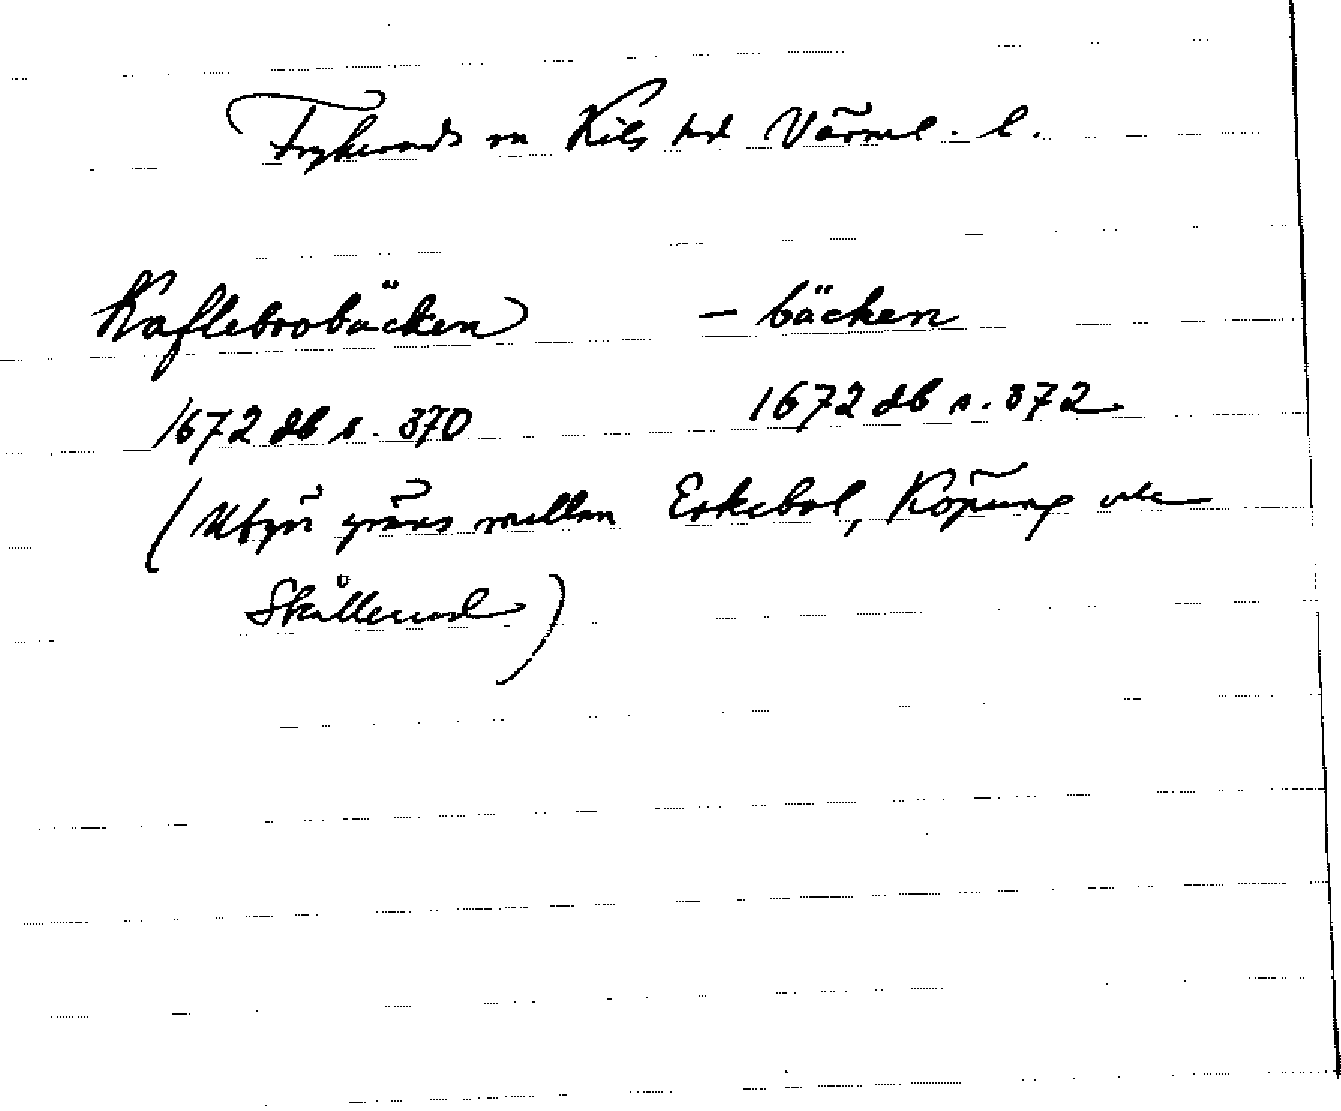 Frykeruds sn Kils hd Värml. l.
Kaflebrobäcken – bäcken
1672 db s. 370 1672 db s. 372
(Utgör gräns mellan Erkebol, Köpung och
Skållerud)